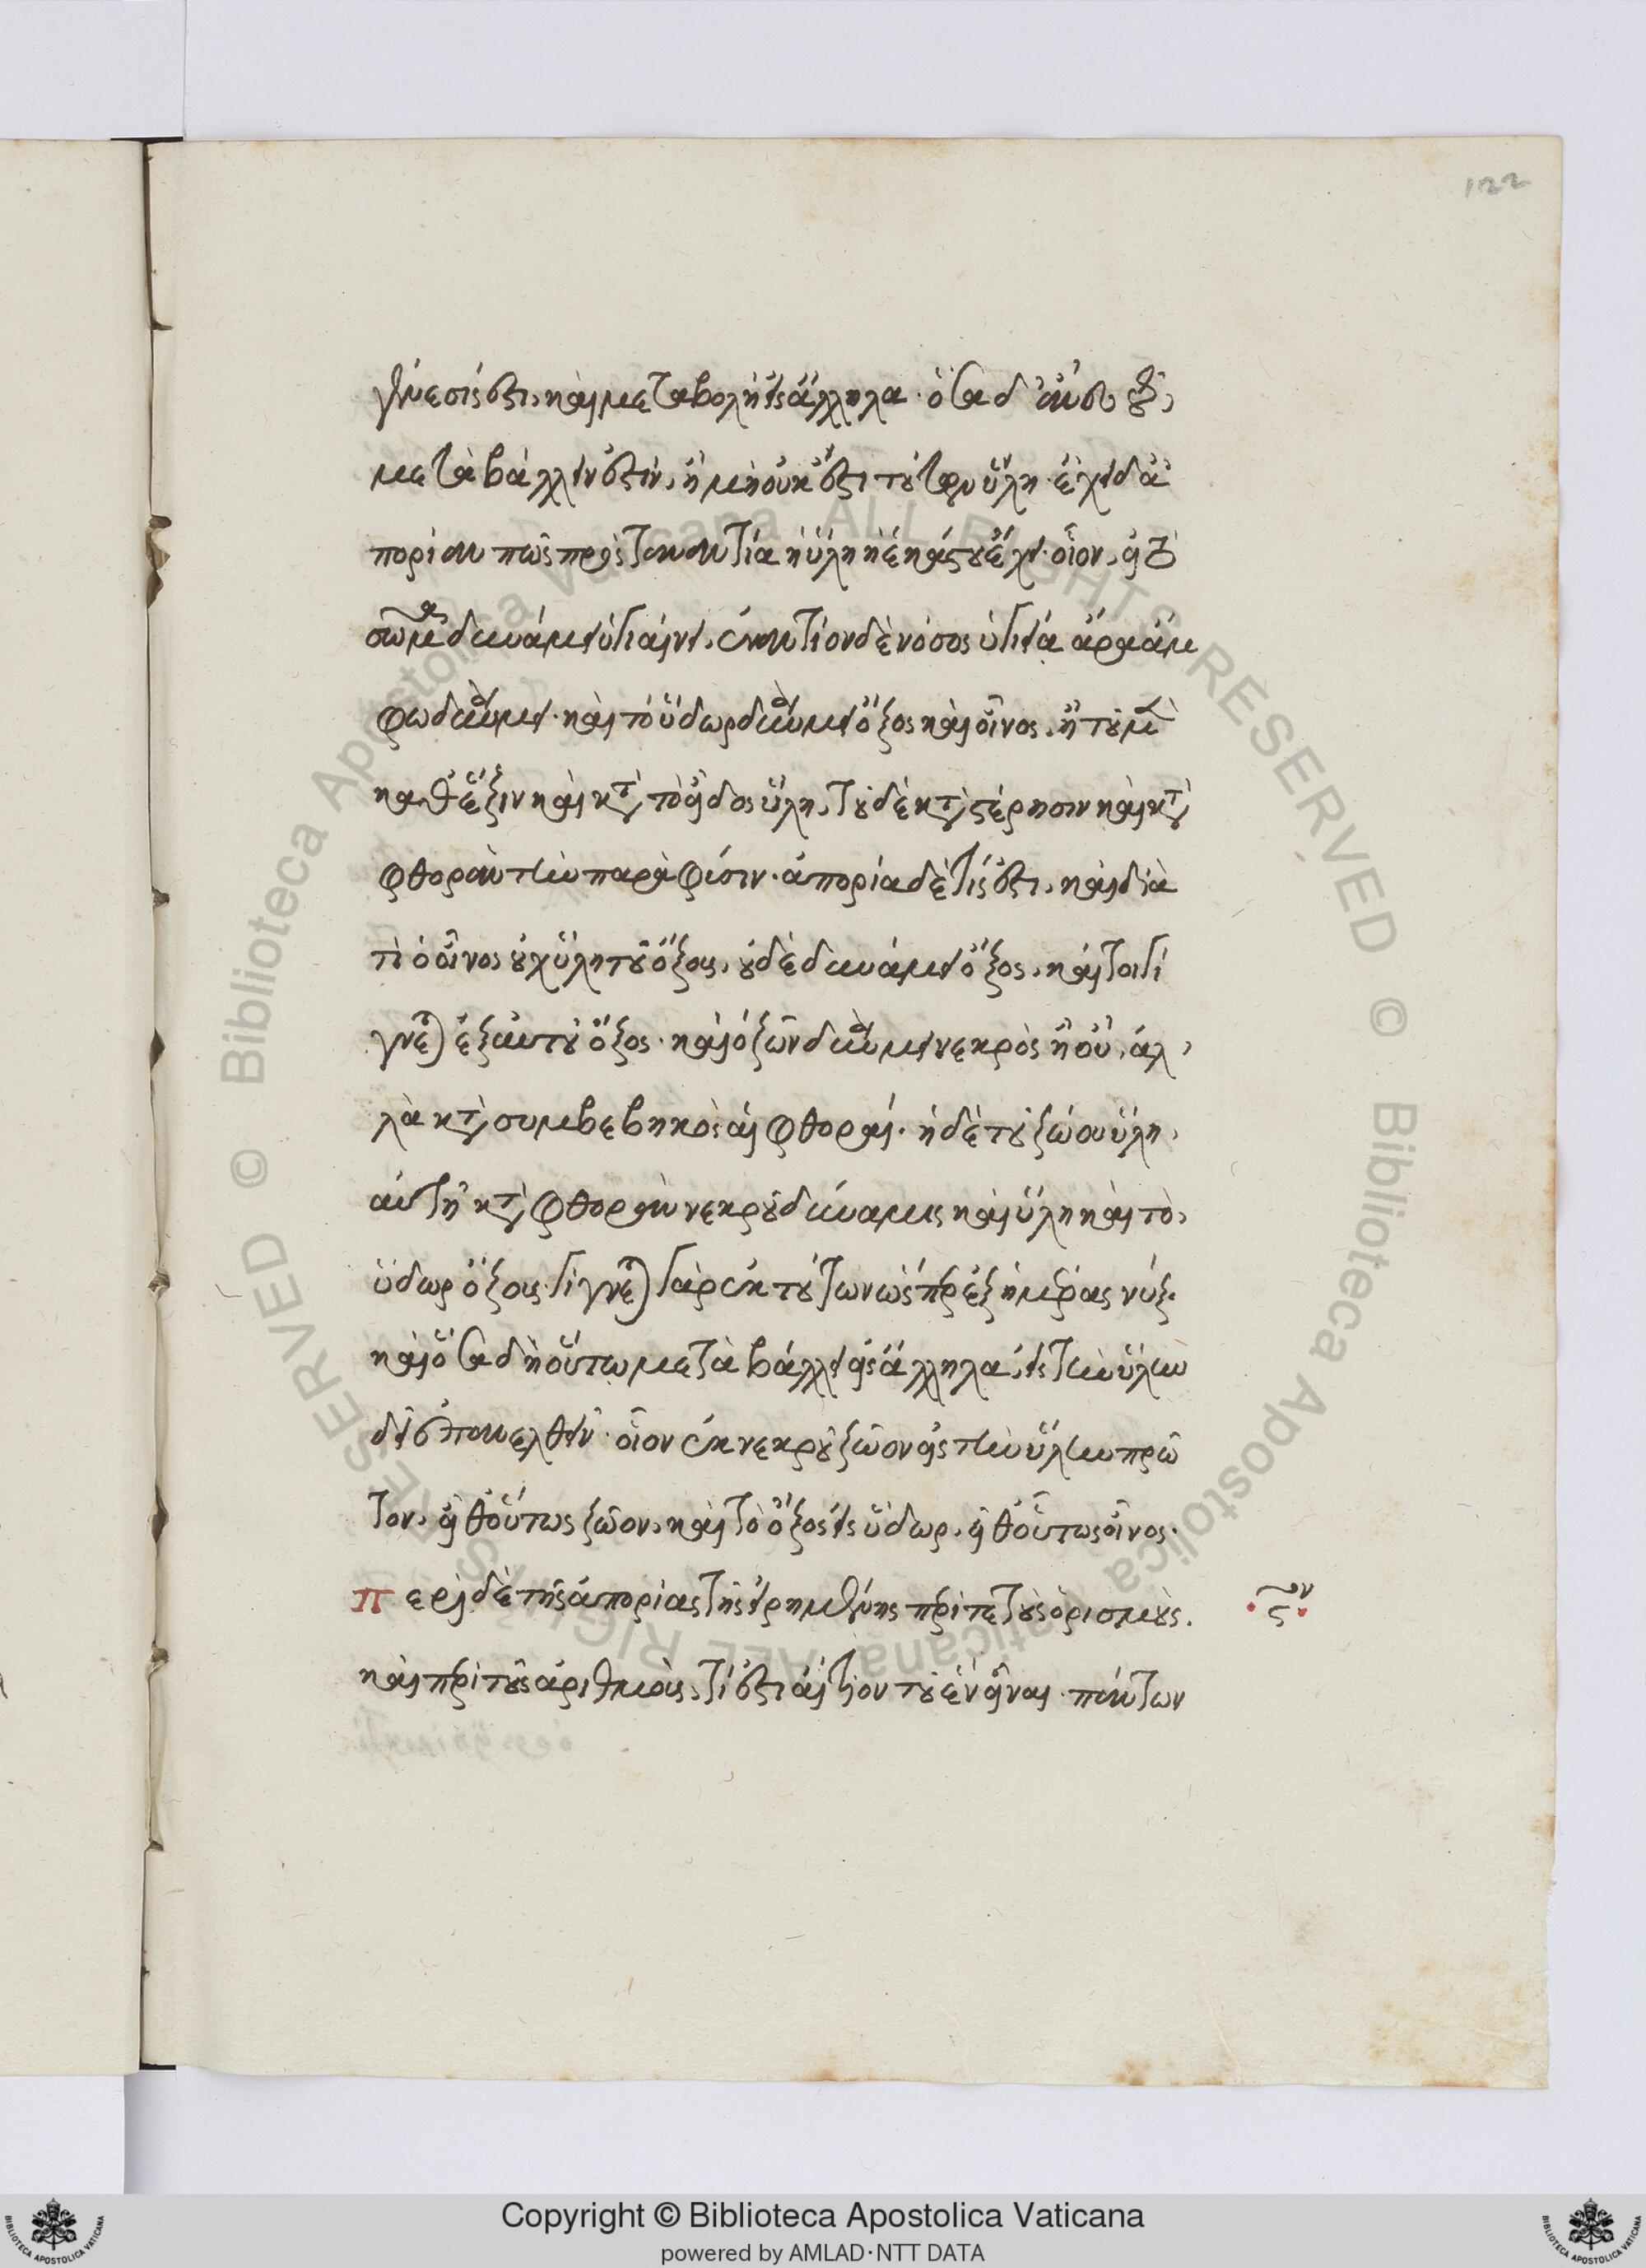 122
γένεσίς ἐστι, καὶ μεταβολὴ εἰς ἄλληλα· ὅσα δ' ἄνευ τοῦ
μεταβάλλειν ἐστὶν, ἢ μὴ οὐκ ἔστι τούτων ὕλη· ἔχει δ' ἀ
πορίαν πῶς πρὸς τἀναντία ἡ ὕλη ἡ ἑκάστου ἔχει· οἷον, εἰ τὸ
σῶμα δυνάμει ὑγιαίνει, ἐναντίον δὲ νόσος ὑγιεία ἄρα ἄμ
φω δυνάμει· καὶ τὸ ὕδωρ δυνάμει ὄξος καὶ οἶνος, ἢ τοῦ μὲν
καθ' ἕξιν καὶ κατὰ τὸ εἶδος ὕλη, τοῦ δὲ κατὰ στέρησιν καὶ κατὰ
φθορὰν τὴν παρὰ φύσιν· ἀπορία δέ τίς ἐστι, καὶ διὰ
τὶ ὁ οἶνος οὐχ ὕλη τοῦ ὄξους, οὐδὲ δυνάμει ὄξος, καί τοι γί
γνεται ἐξ αὐτοῦ ὄξος· καὶ ὁ ζῶν δυνάμει νεκρὸς ἢ οὔ, ἀλ
λὰ κατὰ συμβεβηκὸς αἱ φθοραί· ἡ δὲ τοῦ ζώου ὕλη,
αὐτὴ κατὰ φθορὰν νεκροῦ δύναμις καὶ ὕλη καὶ τὸ
ὕδωρ ὄξους· γίγνεται γὰρ ἐκ τούτων ὥσπερ ἐξ ἡμέρας νύξ·
καὶ ὅσα δὴ οὕτω μεταβάλλει εἰς ἄλληλα, εἰς τὴν ὕλην
δεῖ ἐπανελθεῖν· οἷον ἐκ νεκροῦ ζῶον εἰς τὴν ὕλην πρῶ
τον, εἶθ' οὕτως ζῶον, καὶ τὸ ὄξος εἰς ὕδωρ, εἶθ' οὕτως οἶνος·
Περὶ δὲ τῆς ἀπορίας τῆς εἰρημένης περί τε τοὺς ὁρισμοὺς,
καὶ περὶ τοὺς ἀριθμοὺς, τί ἐστι αἴτιον τοῦ ἓν εἶναι· πάντων
Copyright © Biblioteca Apostolica Vaticana
powered by AMLAD·NTT DATA